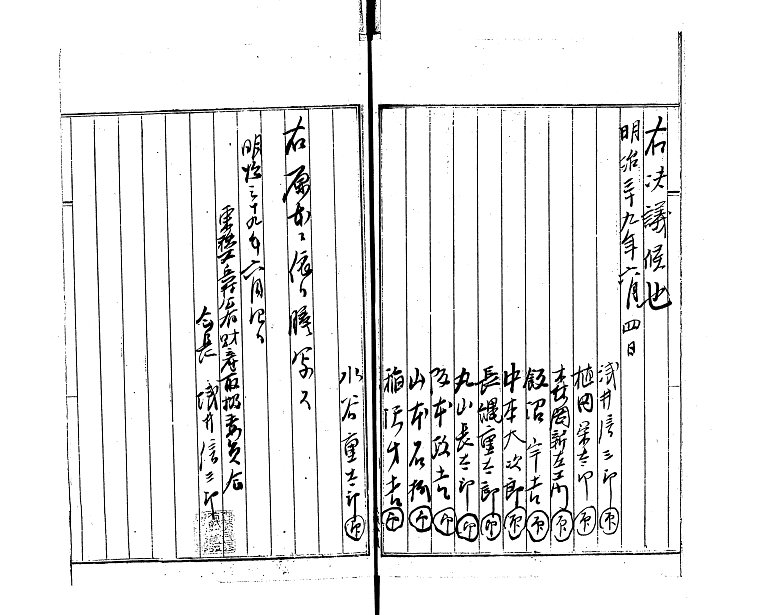 右決議候也
明治三十九年六月四日
浅井信三郎 ㊞
植田栄太郎 ㊞
岡新左エ門 ㊞
飯沼宇吉 ㊞
中本大次郎 ㊞
長縄重太郎 ㊞
丸山長太郎 ㊞
阪本政吉 ㊞
山本石松 ㊞
稲沢才吉 ㊞
水谷重太郎 ㊞
右原本ニ依リ謄写ス
明治三十九年六月
財産取扱委員会
会長 浅井信三郎